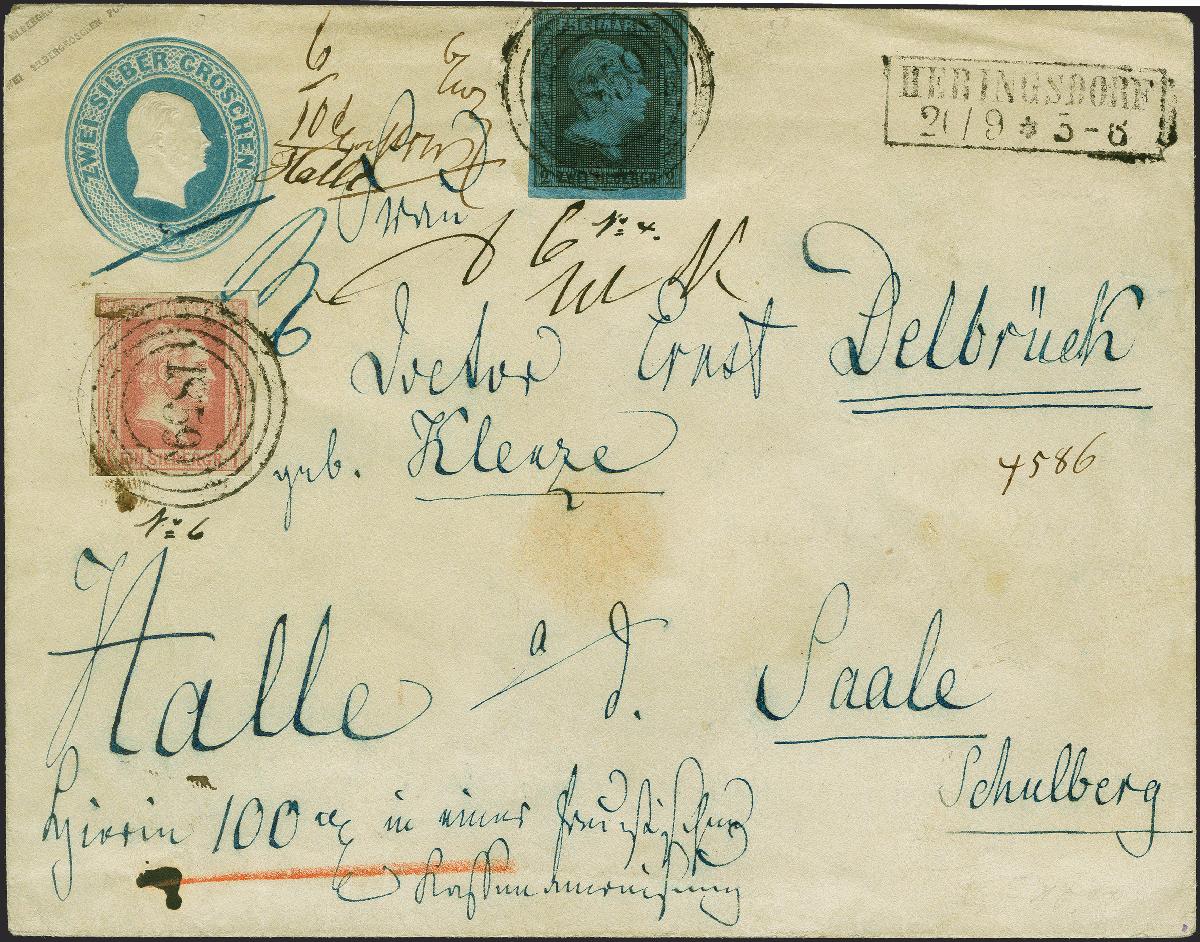 ZWEI SILBER GROSCHEN
HERINGSDORF
20/9 * 5-6
6
10
Halle
FREIMARKE
No 4.
6
Doctor Ernst Delbrück
geb. Klenze
4586
1859
No 6
Halle a/d. Saale
Schulberg
Hierin 100 in einer Preußischen
Kassenanweisung